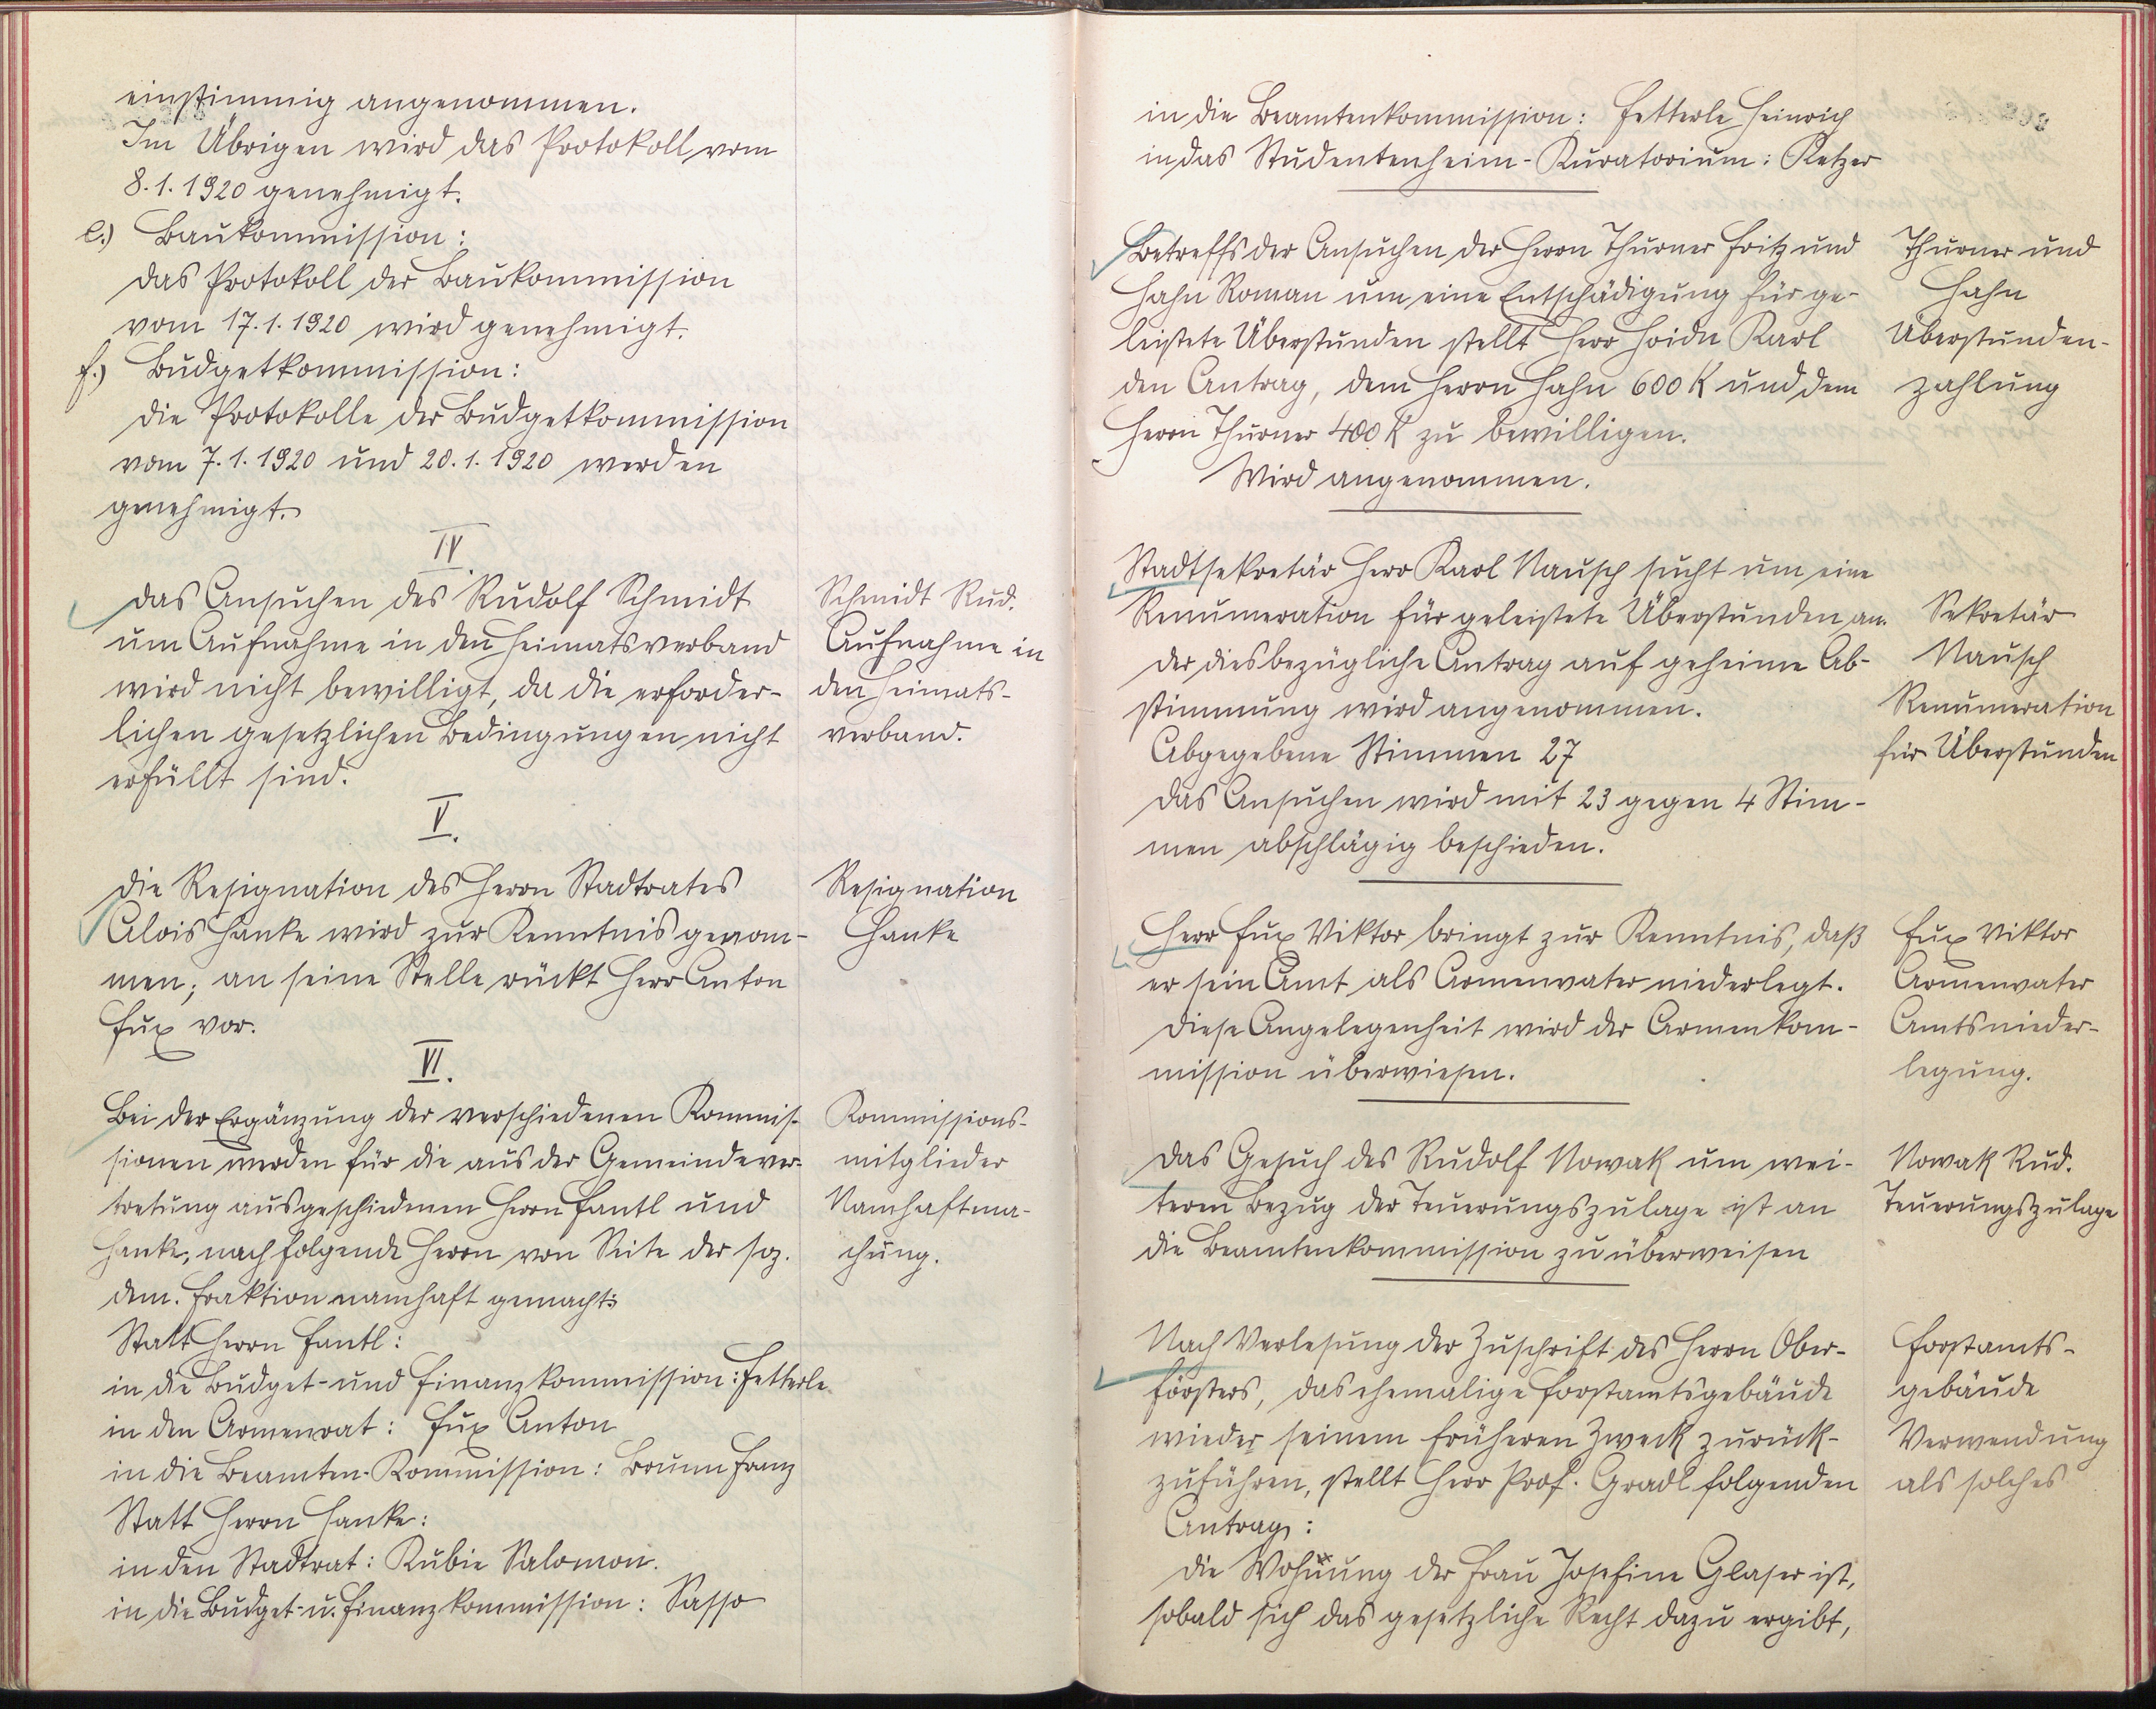 einstimmig angenommen.
Im Übrigen wird das Protokoll vom
8. 1. 1920 genehmigt.
e.) Baukommission:
Das Protokoll der Baukommission
vom 17. 1. 1920 wird genehmigt.
f.) Budgetkommission:
Die Protokolle der Budgetkommission
vom 7. 1. 1920 und 20. 1. 1920 werden
genehmigt.
IV.
Das Ansuchen des Rudolf Schmidt
um Aufnahme in den Heimatsverband
wird nicht bewilligt, da die erforder-
lichen gesetzlichen Bedingungen nicht
erfüllt sind.
Schmidt Rud.
Aufnahme in
den Heimats-
verband.
V.
Die Resignation des Herrn Stadtrates
Alois Hanke wird zur Kenntnis genom-
men; an seine Stelle rückt Herr Anton
Fux vor.
Resignation
Hanke
VI.
Bei der Ergänzung der verschiedenen Kommis-
sionen werden für die aus der Gemeindever-
tretung ausgeschiedenen Herrn Fantl und
Hanke, nachfolgende Herrn von Seite der soz.
dem. Fraktion namhaft gemacht:
Kommissions-
mitglieder
Namhaftma-
chung.
Statt Herrn Fantl:
in die Budget- und Finanzkommission: Fetterle
in den Armenrat: Fux Anton
in die Beamten-Kommission: Brunn Franz
Statt Herrn Hanke:
in den Stadtrat: Kubie Salomon.
in die Budget- u. Finanzkommission: Sasso
in die Beamtenkommission: Fetterle Heinrich
in das Studentenheim-Kuratorium: Ketzer
Betreffs der Ansuchen der Herrn Thurner Fritz und
Hahn Roman um eine Entschädigung für ge-
leistete Überstunden stellt Herr Hoidn Karl
den Antrag, dem Herrn Hahn 600 K und dem
Herrn Thurner 400 K zu bewilligen.
Wird angenommen.
Thurner und
Hahn
Überstunden-
zahlung
Stadtsekretär Herr Karl Nausch sucht um eine
Renumeration für geleistete Überstunden an.
Der diesbezügliche Antrag auf geheime Ab-
stimmung wird angenommen.
Abgegebene Stimmen 27
Das Ansuchen wird mit 23 gegen 4 Stim-
men abschlägig beschieden.
Sekretär
Nausch
Renumeration
für Überstunden
Herr Fux Viktor bringt zur Kenntnis, daß
er sein Amt als Armenvater niederlegt.
Diese Angelegenheit wird der Armenkom-
mission überwiesen.
Fux Viktor
Armenvater
Amtsnieder-
legung.
Das Gesuch des Rudolf Nowak um wei-
teren Bezug der Teuerungszulage ist an
die Beamtenkommission zu überweisen
Nowak Rud.
Teuerungszulage
Nach Verlesung der Zuschrift des Herrn Ober-
försters, das ehemalige Forstamtsgebäude
wieder seinem früheren Zweck zurück-
zuführen, stellt Herr Prof. Gradl folgenden
Antrag:
Die Wohnung der Frau Josefine Glaser ist,
sobald sich das gesetzliche Recht dazu ergibt,
Forstamts-
gebäude
Verwendung
als solches